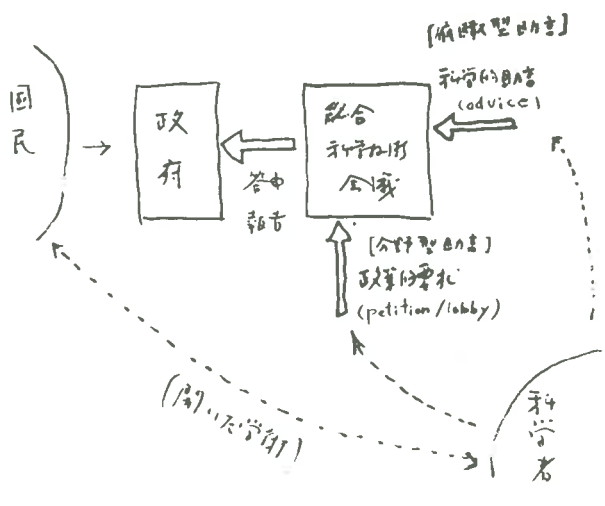 国民
政府
答申
報告
総合
科学技術
会議
[俯瞰型助言]
科学的助言
(advice)
[分野型助言]
政策的要求
(petition/lobby)
(開いた学術)
科学者